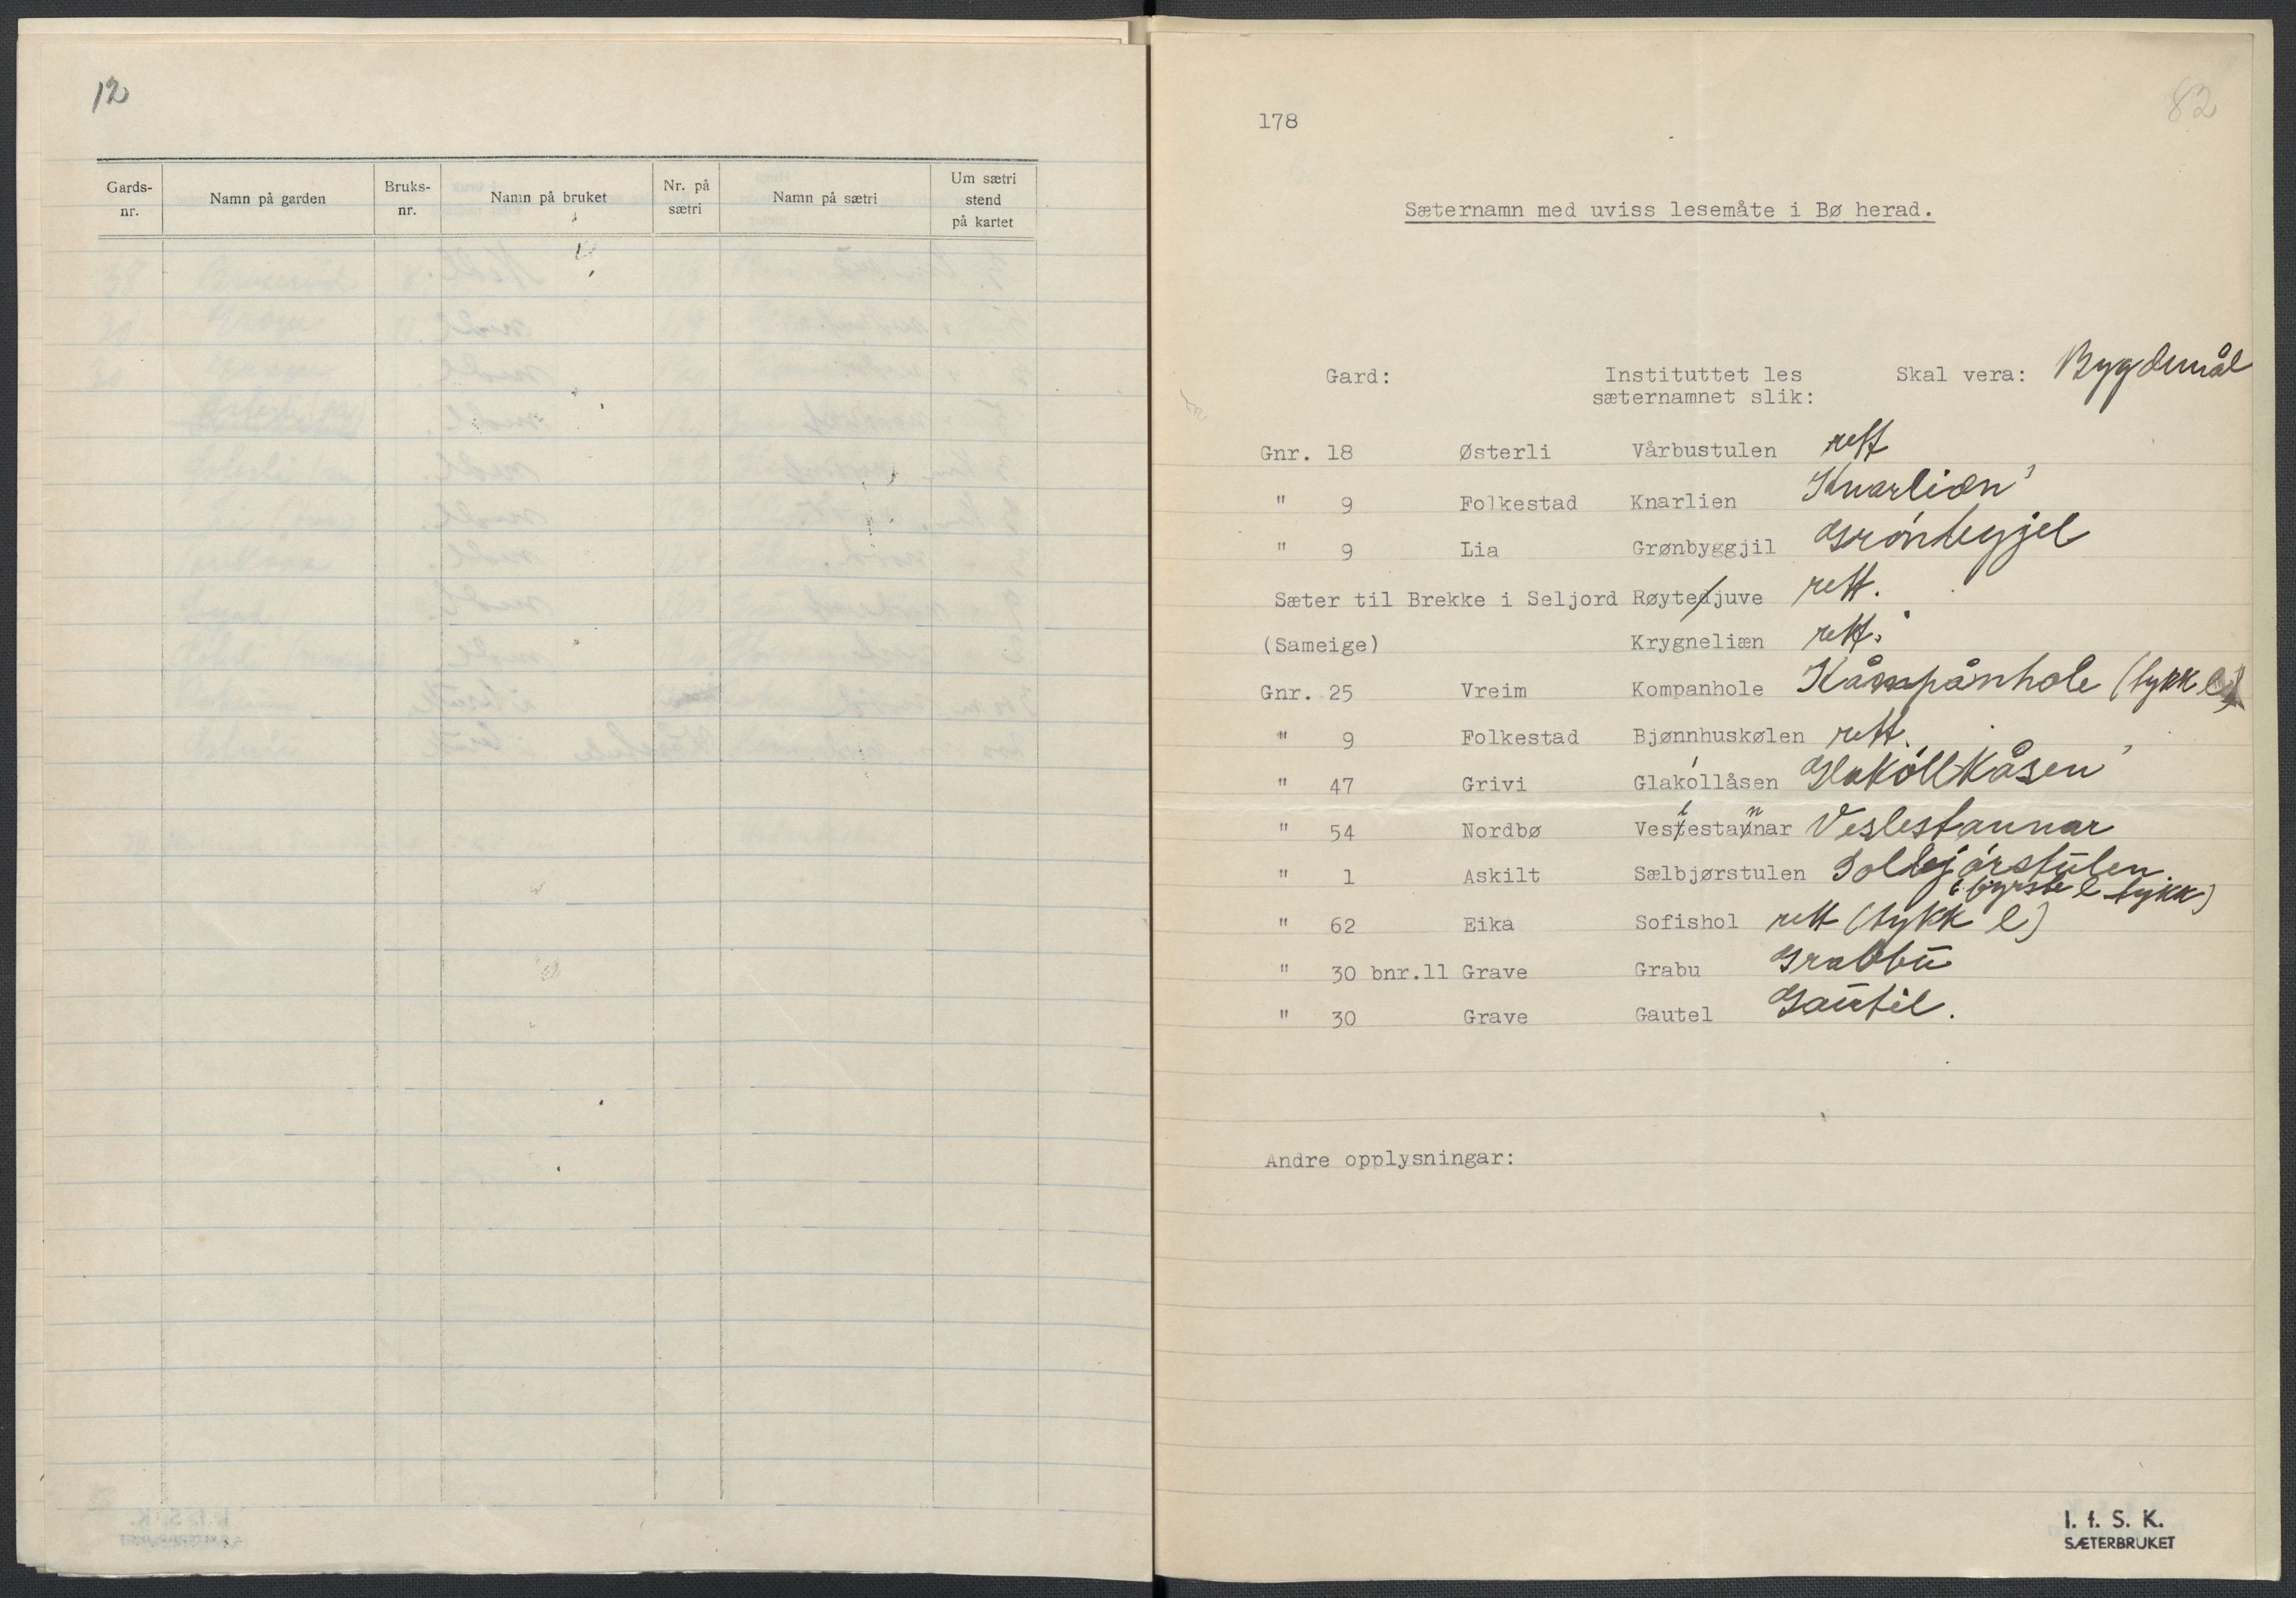 12
Gards-nr. Namn på garden Bruks-nr. Namn på bruket Nr. på sætri Namn på sætri Um sætri stend på kartet
82
178
Sæternamn med uviss lesemåte i Bø herad.
Gard: Instituttet les sæternamnet slik: Skal vera: Bygdemål
Gnr. 18 Østerli Vårbustulen rett
" 9 Folkestad Knarlien Knarliæn
" 9 Lia Grønbyggjil
Sæter til Brekke i Seljord Røytedjuve rett.
(Sameige) Krygneliæn rett.
Gnr. 25 Vreim Kompanhole Kåmpånhole (tykk l)
" 9 Folkestad Bjønnhuskølen rett.
" 47 Grivi Glakóllåsen Glakóllkåsen
" 54 Nordbø Veslestannar Veslestaunar
" 1 Askilt Sælbjørstulen
(fyrste l tykk)
" 62 Eika Sofishol rett (tykk l)
" 30 bnr.11 Grave Grabu Grabbū
" 30 Grave Gautel Gaūtil.
Andre opplysningar:
I. f. S. K.
SÆTERBRUKET